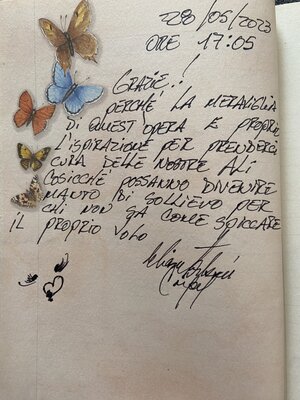 28/05/2023
ORE 17:05
GRAZIE!
PERCHÉ LA MERAVIGLIA
DI QUEST'OPERA È PROPRIO
L'ISPIRAZIONE PER PRENDERCI
CURA DELLE NOSTRE ALI
COSICCHÉ POSSANNO DIVENIRE
MANTO DI SOLLIEVO PER
CHI NON SA COME SPICCARE
IL PROPRIO VOLO